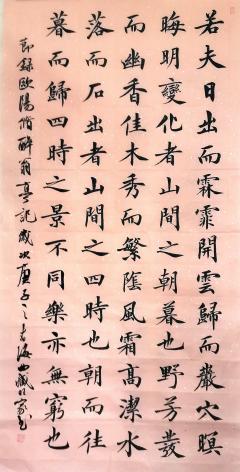 若夫日出而霖霏開雲歸而巖穴暝
晦明變化者山間之朝暮也野芳發
而幽香佳木秀而繁陰風霜高潔水
落而石出者山間之四時也朝而往
暮而歸四時之景不同樂亦無窮也
節錄歐陽脩醉翁亭記歲次庚子